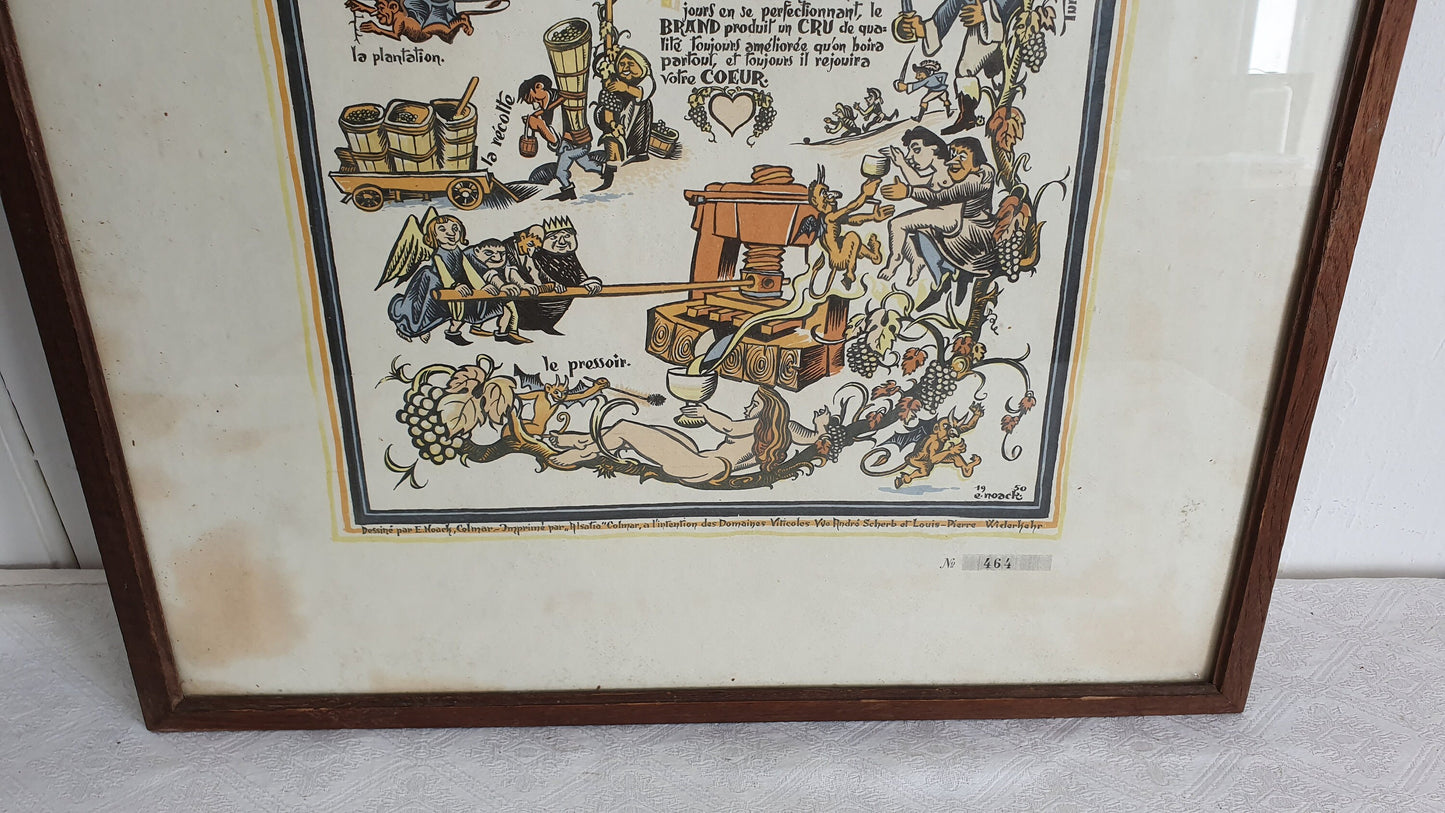 jours en se perfectionnant, le
BRAND produit un CRU de qua-
lité toujours améliorée qu'on boira
partout, et toujours il rejouira
votre COEUR.
la plantation.
la récolte
le pressoir.
19 50
e. noack
Dessiné par E. Noack, Colmar - Imprimé par „Alsatia" Colmar, a l'intention des Domaines Viticoles Vve André Scherb et Louis-Pierre Widerhehr
№ 464